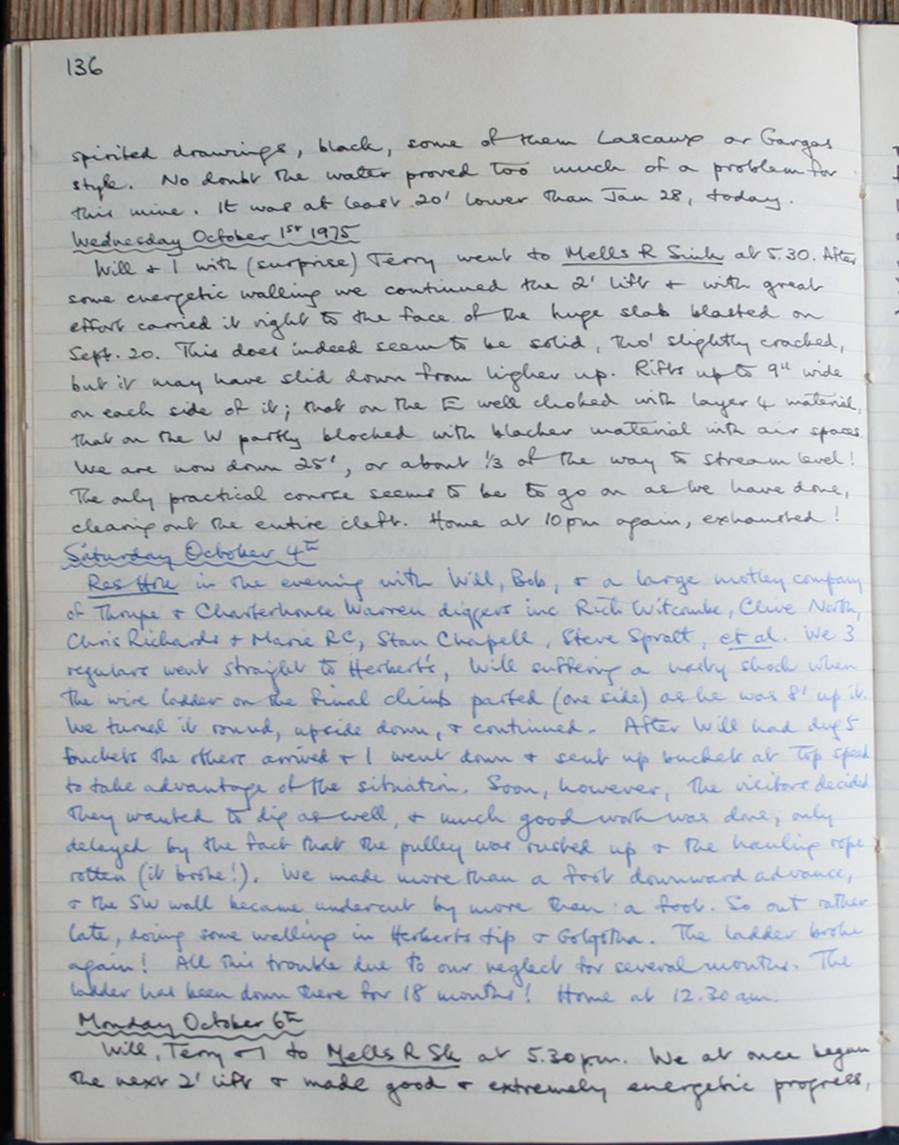 136
spirited drawings, black, some of them Lascaux or Gargas
style. No doubt the water proved too much of a problem for
this mine. It was at least 20' lower than Jan 28, today.
Wednesday October 1st 1975
Will & I with (surprise) Terry went to Mells R Sink at 5.30. After
some energetic walling we continued the 2' lift & with great
effort carried it right to the face of the huge slab blasted on
Sept. 20. This does indeed seem to be solid, tho' slightly cracked,
but it may have slid down from higher up. Rifts up to 9" wide
on each side of it; that on the E well choked with layer 4 material,
that on the W partly blocked with blacker material with air spaces.
We are now down 25', or about 1/3 of the way to stream level!
The only practical course seems to be to go on as we have done,
clearing out the entire cleft. Home at 10pm again, exhausted!
Saturday October 4th
Res Hole in the evening with Will, Bob, & a large motley company
of Thrupe & Charterhouse Warren diggers inc Rich Witcombe, Clive North,
Chris Richards & Marie RC, Stan Chapell, Steve Spratt, et al. We 3
regulars went straight to Herbert's, Will suffering a nasty shock when
the wire ladder on the final climb parted (one side) as he was 8' up it.
We turned it round, upside down, & continued. After Will had dug 5
buckets the others arrived & I went down & sent up buckets at top speed
to take advantage of the situation. Soon, however, the visitors decided
they wanted to dig as well, & much good work was done, only
delayed by the fact that the pulley was rusted up & the hauling rope
rotten (it broke!). We made more than a foot downward advance,
& the SW wall became undercut by more than a foot. So out rather
late, doing some walling in Herberts tip & Golgotha. The ladder broke
again! All this trouble due to our neglect for several months. The
ladder has been down there for 18 months! Home at 12.30 am.
Monday October 6th
Will, Terry & I to Mells R Sk at 5.30 pm. We at once began
the next 2' lift & made good & extremely energetic progress,